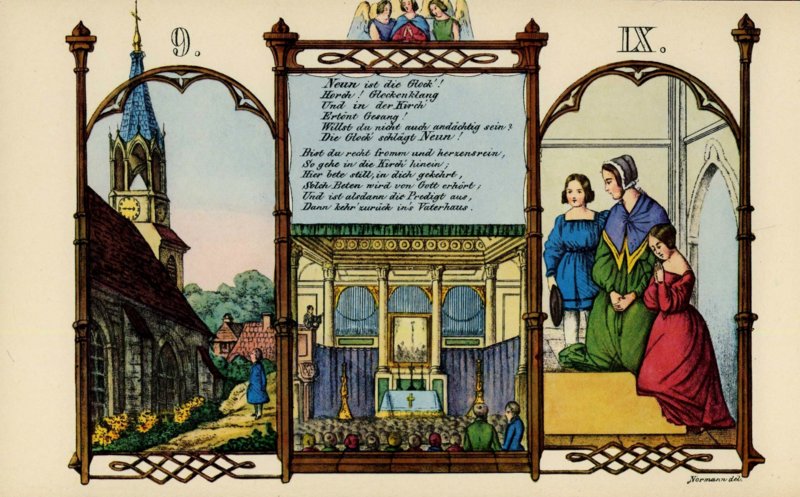 9.
IX.
Neun ist die Glock'!
Horch! Glockenklang
Und in der Kirch'
Ertönt Gesang!
Willst du nicht auch andächtig sein?
Die Glock' schlägt Neun!
Bist du recht fromm und herzensrein,
So gehe in die Kirch' hinein;
Hier bete still, in dich gekehrt,
Solch Beten wird von Gott erhört;
Und ist alsdann die Predigt aus,
Dann kehr' zurück in's Vaterhaus.
Normann del.